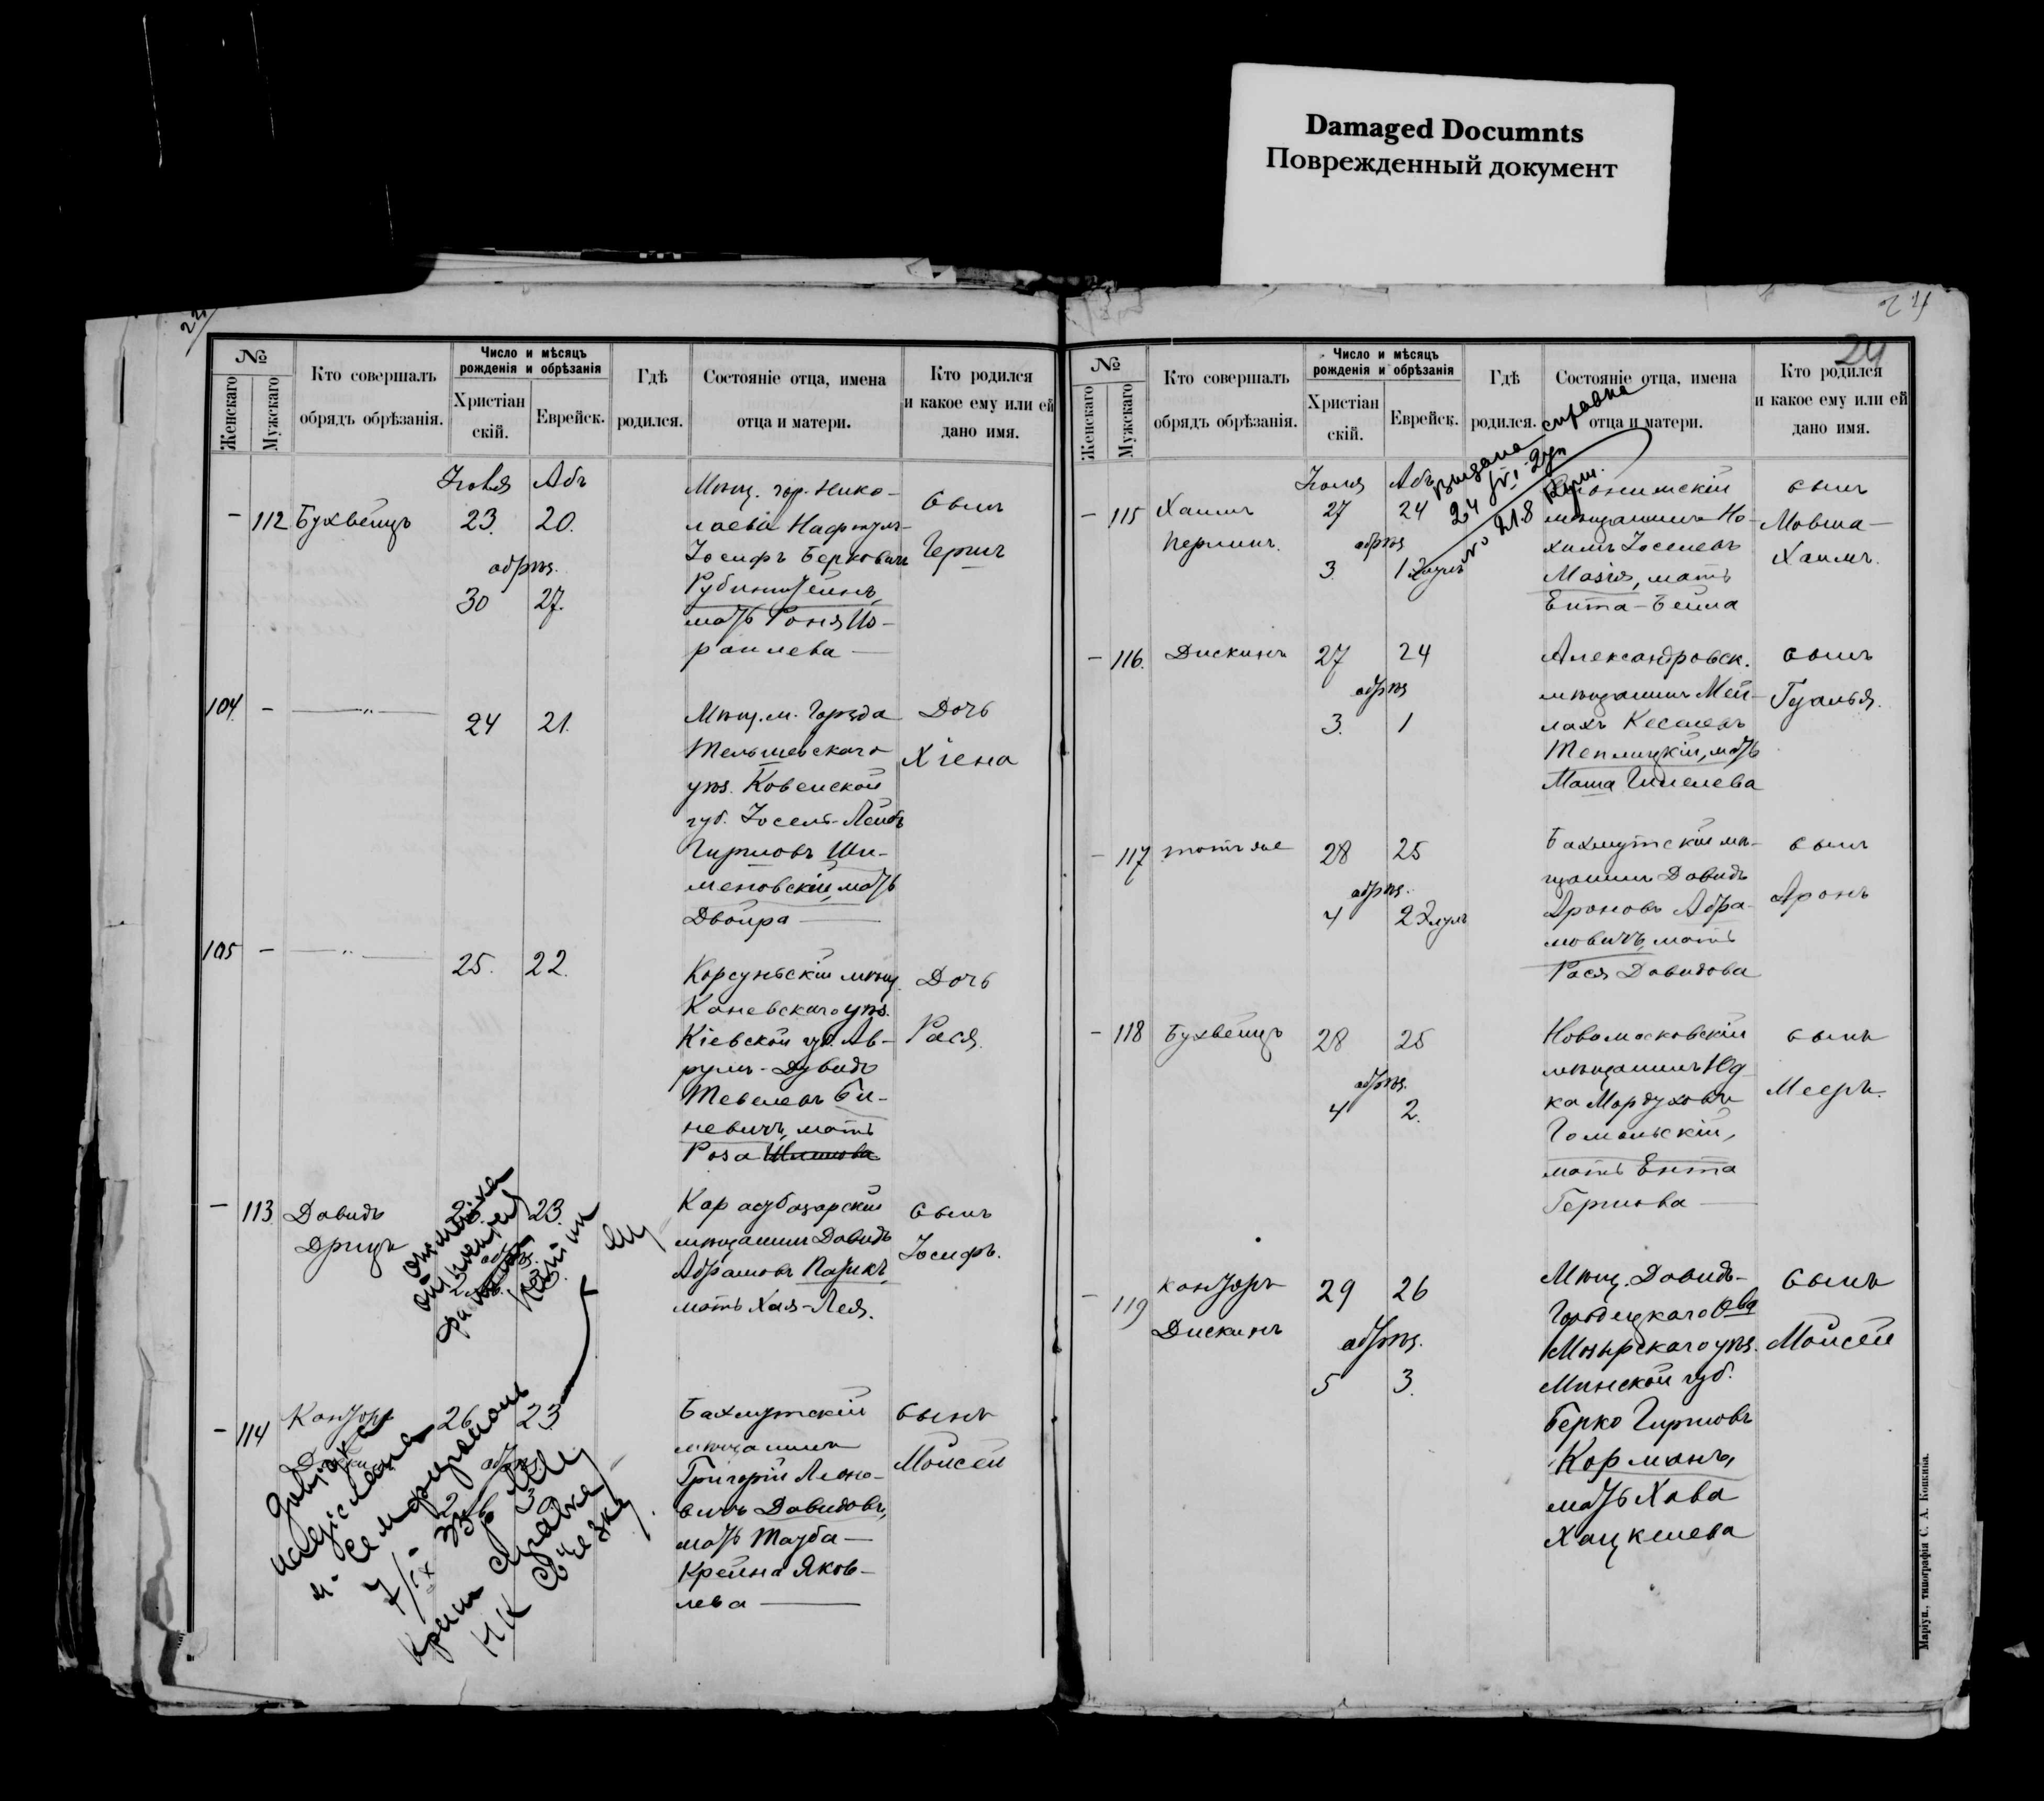 Damaged Documnts
Поврежденный документ
№
Женскаго
Мужскаго
Кто совершалъ
обрядъ обрѣзанія.
Число и мѣсяцъ
рожденія и обрѣзанія
Христіан
скій.
Еврейск.
Гдѣ
родился.
Состояніе отца, имена
отца и матери.
Кто родился
и какое ему или ей
дано имя.
Іюля Абъ
– 112 Бухвейцъ 23 20.
обрѣз.
30 27.
Мѣщ. гор. Нико–
лаева Нафтулъ–
Іосифъ Берковичъ
Рубинштейнъ,
мать Роня Из–
раилева —
Сынъ
104. – —„— 24 21.
Мѣщ. м. Горжда
Тельшевскаго
уѣз. Ковенской
губ. Іосель-Лейбъ
Гиршовъ Ши–
меновскій, мать
Двойра —
Дочь
Хіена
105 – —„— 25. 22.
Корсуньскій мѣщ.
Каневскаго уѣз.
Кіевской губ. Ав–
румъ-Дувидъ
Тевелевъ Би–
невичъ, мать
Роза
Дочь
Рася.
– 113 Давидъ
Дрицъ
23.
Карасубазарскій
мѣщанинъ Давидъ
Абрамовъ
мать Хая-Лея.
Сынъ
Іосифъ.
– 114 Канторъ
26 23
обрѣз.
Бахмутскій
мѣщанинъ
Григорій Леоно–
вичъ Давидовъ,
мать Тауба —
Крейна Яков–
лева —
Сынъ
Мойсей
справка
24
24
№
Женскаго
Мужскаго
Кто совершалъ
обрядъ обрѣзанія.
Число и мѣсяцъ
рожденія и обрѣзанія
Христіан
скій.
Еврейск.
Гдѣ
родился.
Состояніе отца, имена
отца и матери.
Кто родился
и какое ему или ей
дано имя.
выдана справка
№ 218
Іюля Абъ
– 115 Хаимъ
Перлинъ.
27 24
обрѣз
3. 1 Элулъ
мѣщанинъ Но–
химъ Іоселевъ
мать
Ента-Бейла
сынъ
Мовша–
Хаимъ.
– 116. Дискинъ 27 24
обрѣз
3. 1
Александровск.
мѣщанинъ Мей–
лахъ
Теплицкій, мать
Маша
сынъ
Гдалья.
– 117 тотъ же 28 25
обрѣз.
4 2 Элулъ
Бахмутскій мѣ–
щанинъ Давидъ
Ароновъ Абра–
мовичъ, мать
Рася Давидова
сынъ
Аронъ
– 118 Бухвейцъ 28 25
обрѣз.
4 2.
Новомосковскій
мѣщанинъ Юд–
ка Мордуховъ
Гомольскій,
мать Ента
Гершова —
сынъ
Мееръ.
– 119 Канторъ
Дискинъ
29 26
обрѣз.
5 3.
Мѣщ. Давидъ–
Городецкаго о-ва
Мозырскаго уѣз.
Минской губ.
Берко Гиршовъ
Корманъ,
мать Хава
Хацкелева
Сынъ
Мойсей
Маріуп., типографія С. А. Копкина.